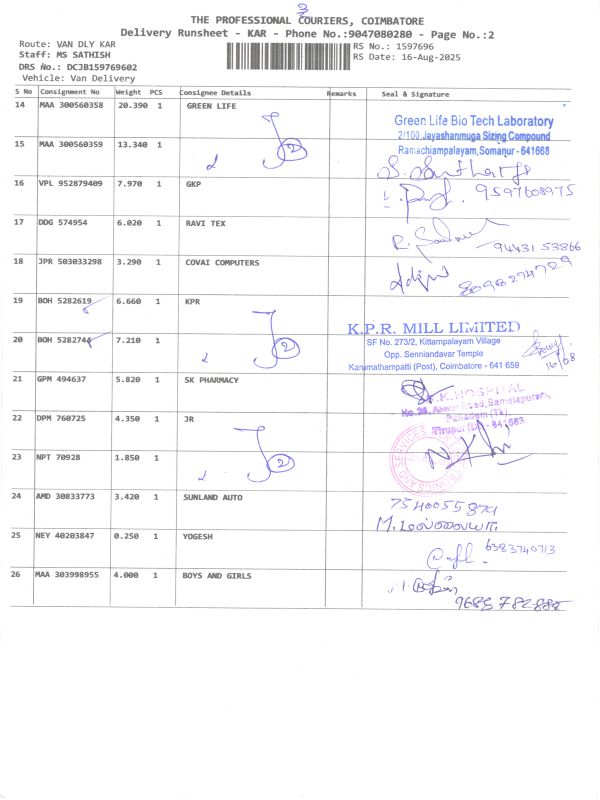 2/2
THE PROFESSIONAL COURIERS, COIMBATORE
Delivery Runsheet - KAR - Phone No.:9047080280 - Page No.:2
Route: VAN DLY KAR
RS No.: 1597696
Staff: MS SATHISH
RS Date: 16-Aug-2025
DRS No.: DCJB159769602
Vehicle: Van Delivery
S No Consignment No Weight PCS Consignee Details Remarks Seal & Signature
14 MAA 300560358 20.390 1 GREEN LIFE
Green Life Bio Tech Laboratory
2/100, Jayashanmuga Sizing Compound
Ramachiampalayam, Somanur - 641668
2
15 MAA 300560359 13.340 1
16 VPL 952879409 7.970 1 GKP
9597608975
17 DDG 574954 6.020 1 RAVI TEX
94431 53866
18 JPR 503033298 3.290 1 COVAI COMPUTERS
8098274729
19 BOH 5282619 6.660 1 KPR
K.P.R. MILL LIMITED
SF No. 273/2, Kittampalayam Village
Opp. Senniandavar Temple
Karumathampatti (Post), Coimbatore - 641 659
16/08
2
20 BOH 5282744 7.210 1
21 GPM 494637 5.820 1 SK PHARMACY
K. HOSPITAL
Palladam (Tk),
Tirupur (Dt) - 641663
22 DPM 760725 4.350 1 JR
2
23 NPT 70928 1.850 1
24 AMD 30833773 3.420 1 SUNLAND AUTO
25 NEY 40203847 0.250 1 YOGESH
6383740713
26 MAA 303998955 4.000 1 BOYS AND GIRLS